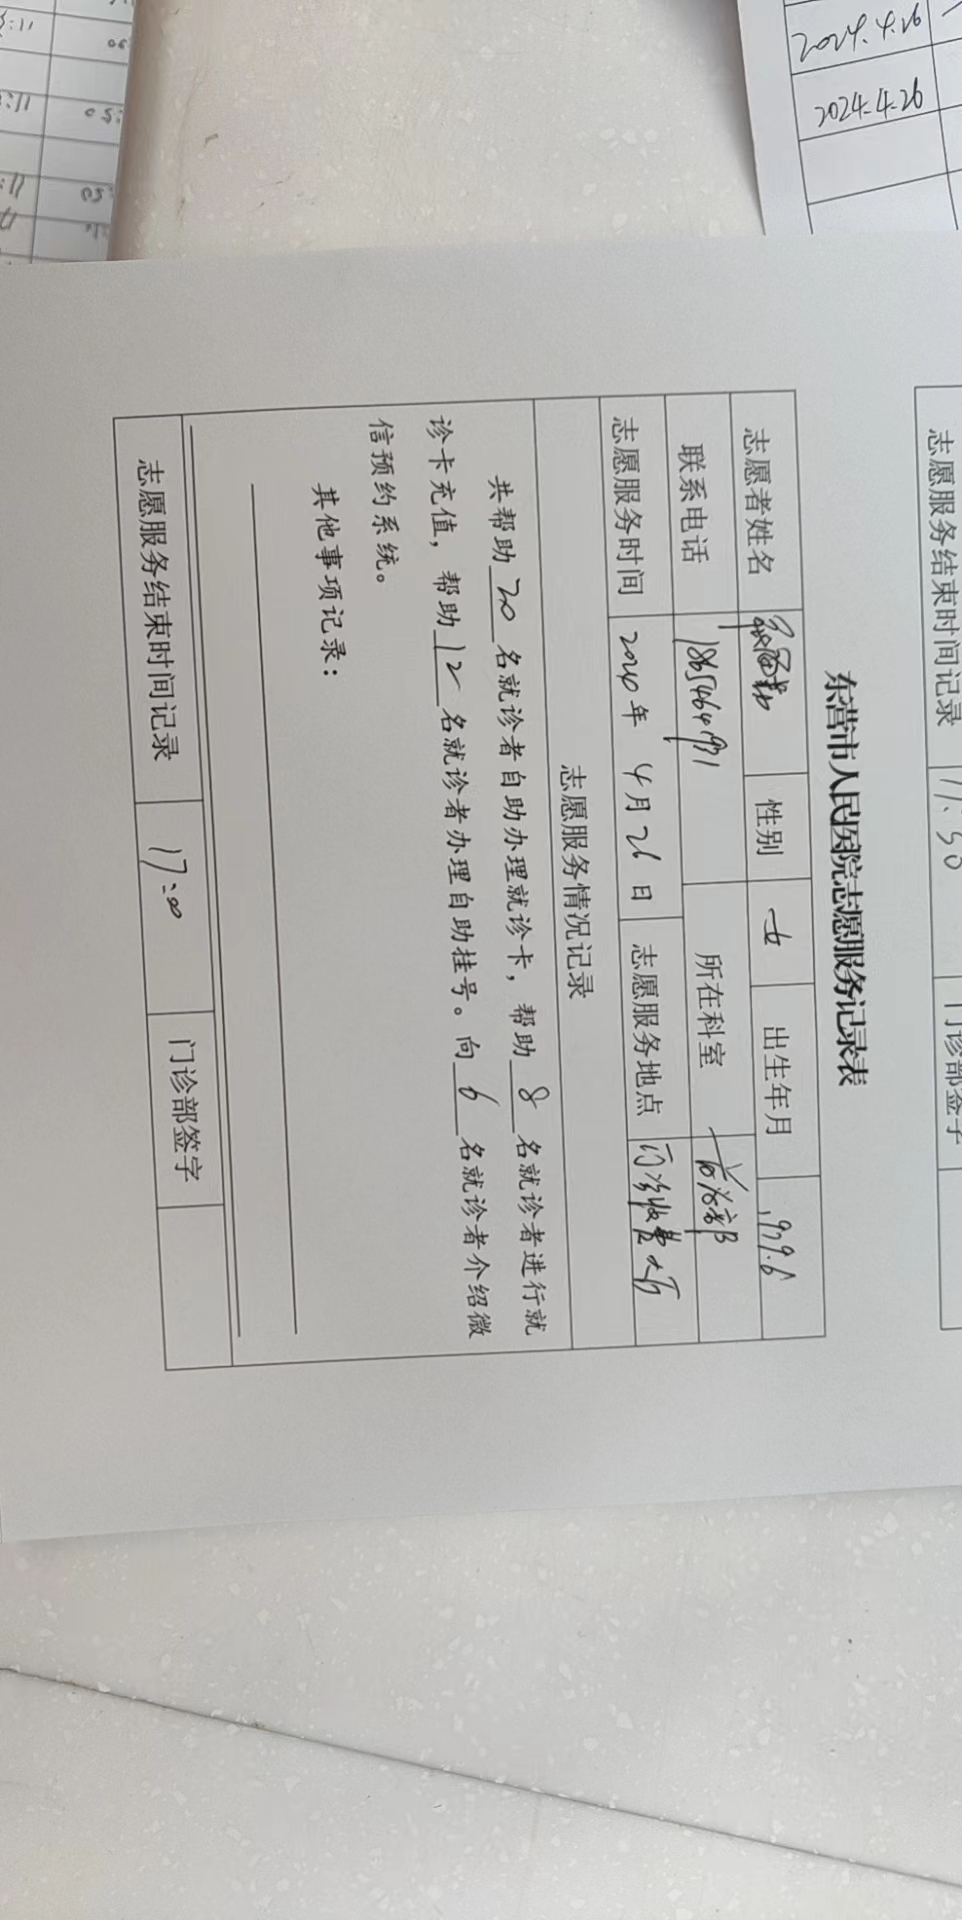 2024.4.26
2024.4.26
志愿服务结束时间记录 17:50 门诊部签字
东营市人民医院志愿服务记录表
志愿者姓名 性别 女 出生年月 1979.6
联系电话 所在科室
志愿服务时间 2024年 4月 26日 志愿服务地点 门诊收费大厅
志愿服务情况记录
共帮助 20 名就诊者自助办理就诊卡，帮助 8 名就诊者进行就
诊卡充值，帮助 12 名就诊者办理自助挂号。向 6 名就诊者介绍微
信预约系统。
其他事项记录：
志愿服务结束时间记录 17:00 门诊部签字